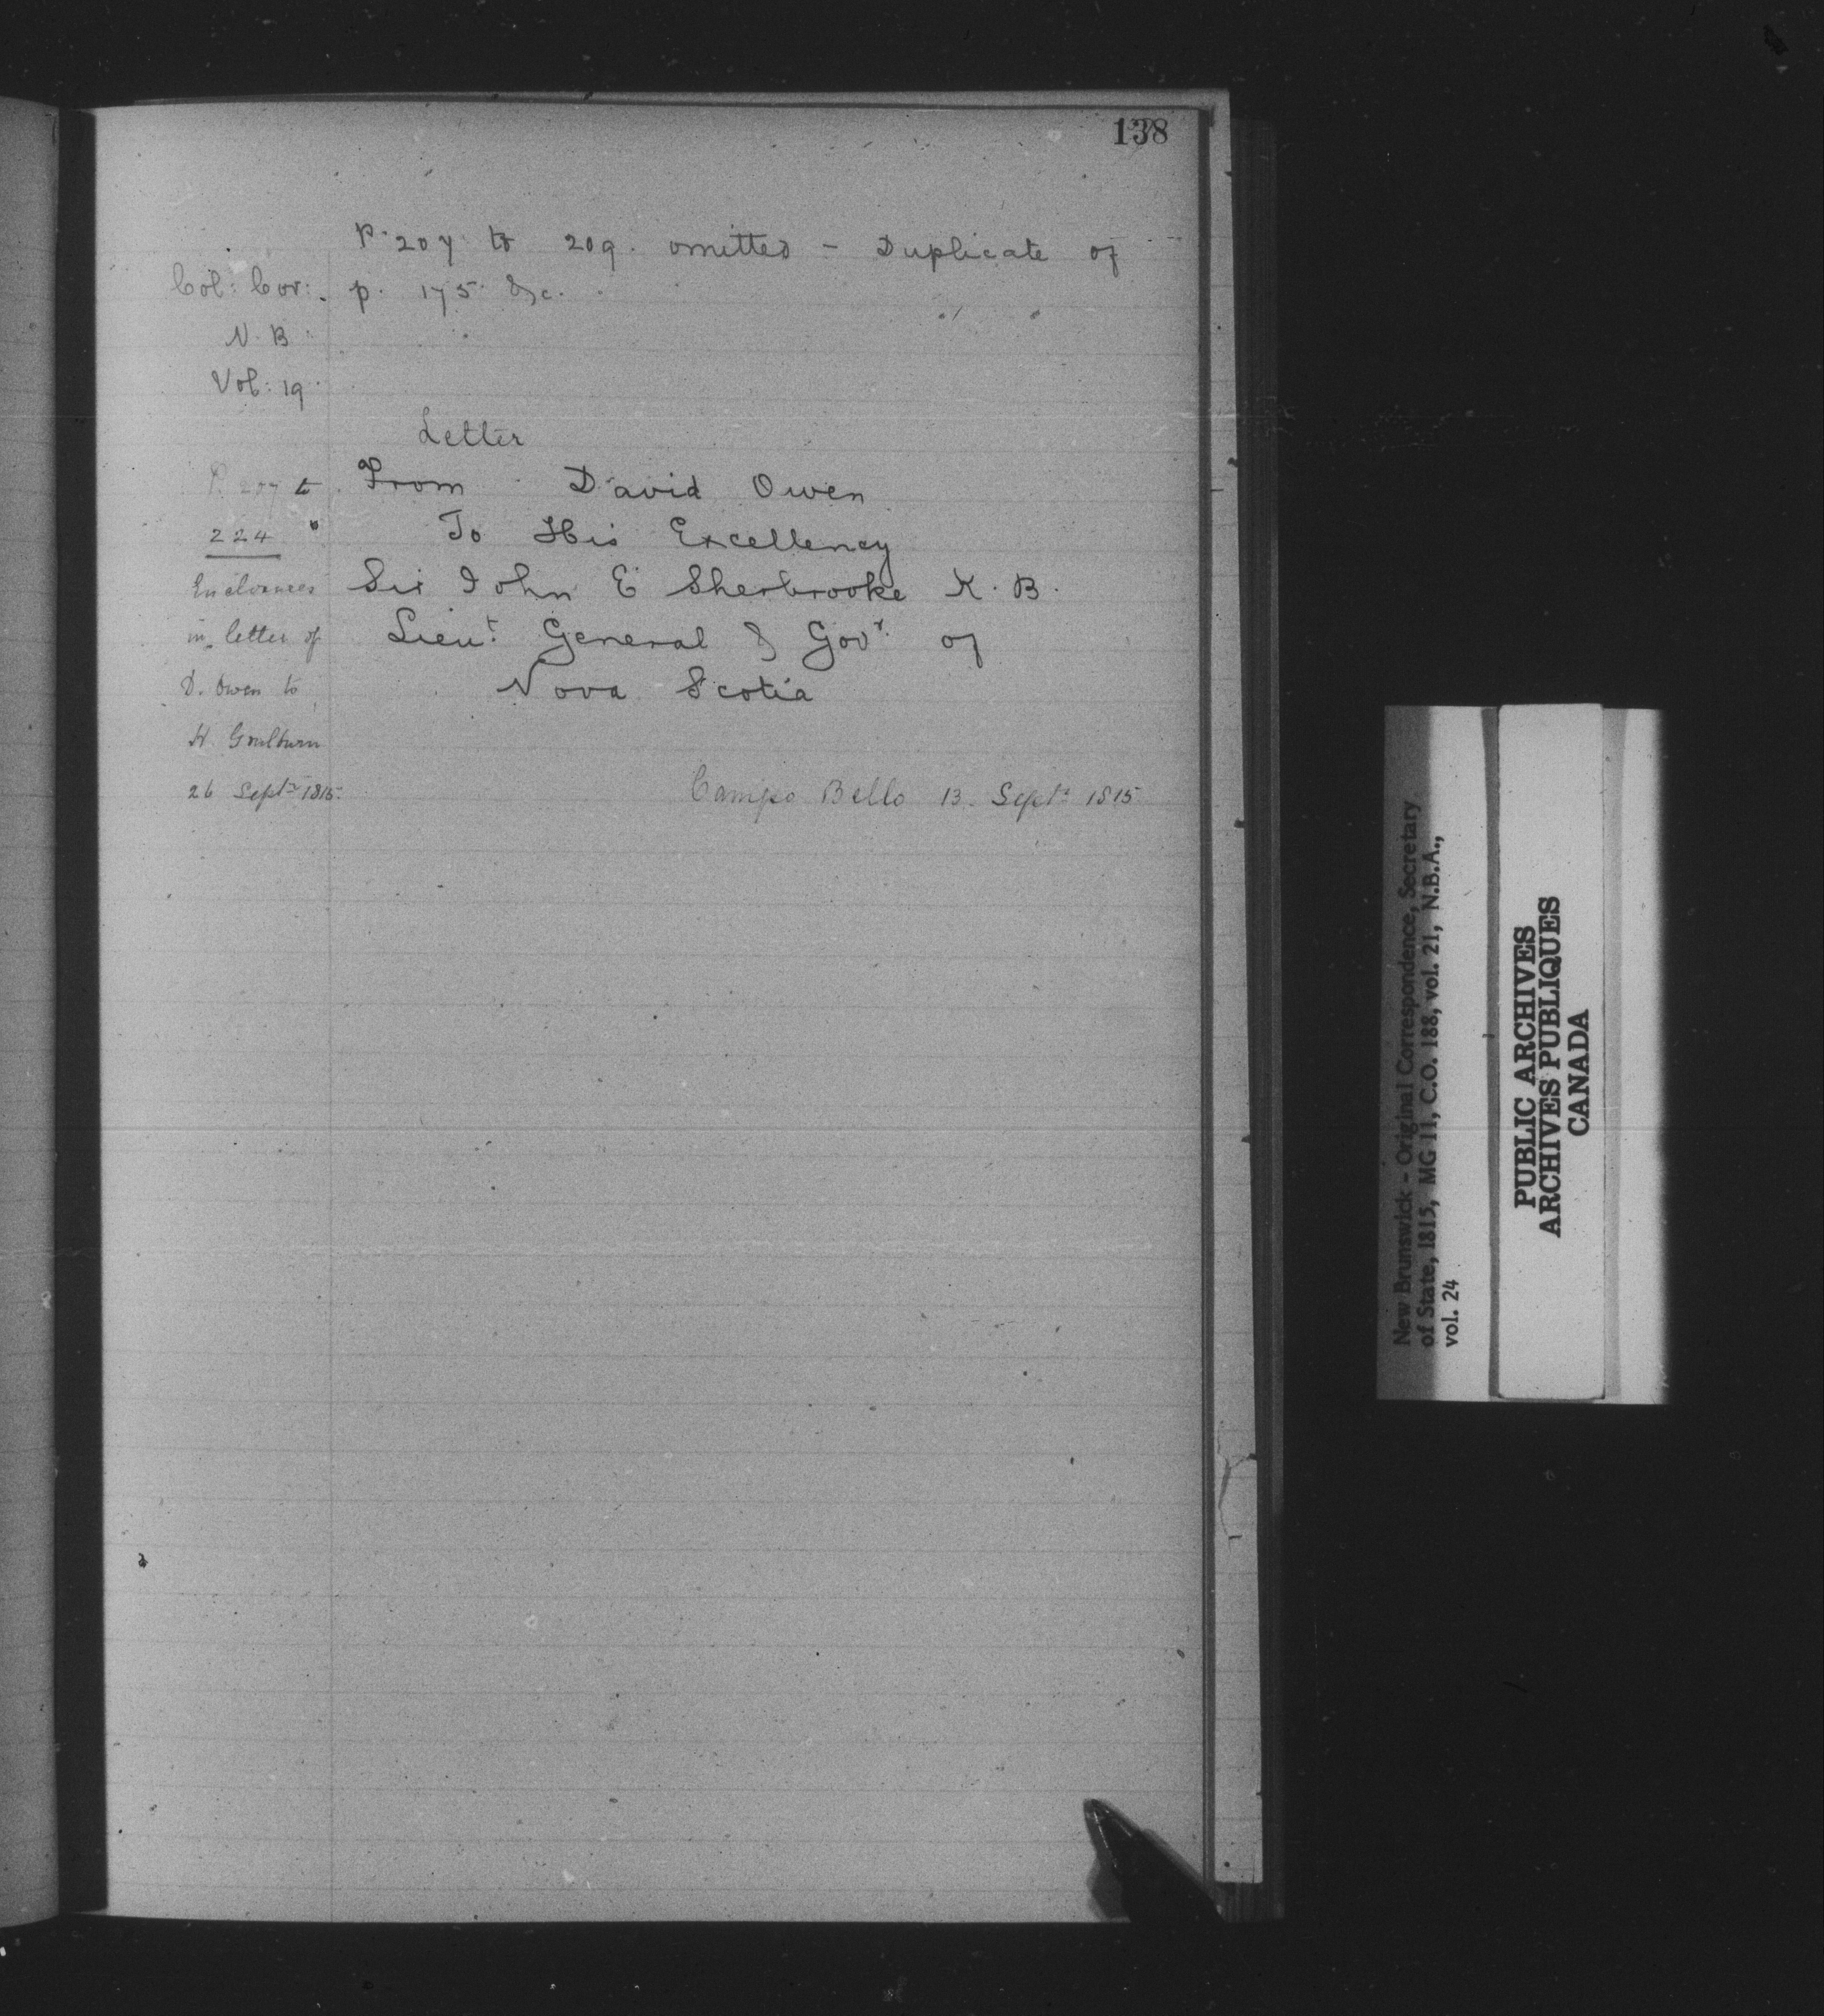 138
P. 207 to 209. omitted - Duplicate of
p. 175. &c.
Col: Cor:
N. B.
Vol: 19.
P. 207 to
224
Enclosures
in letter of
D. Owen to
H. Goulburn
26 Septr 1815.
Letter
From David Owen
To His Excellency
Sir John C Sherbrooke K. B.
Lieut General & Govr. of
Nova Scotia
Campo Bello 13. Septr 1815
New Brunswick - Original Correspondence, Secretary
of State, 1815, MG 11, C.O. 188, vol. 21, N.B.A.,
vol. 24
PUBLIC ARCHIVES
ARCHIVES PUBLIQUES
CANADA